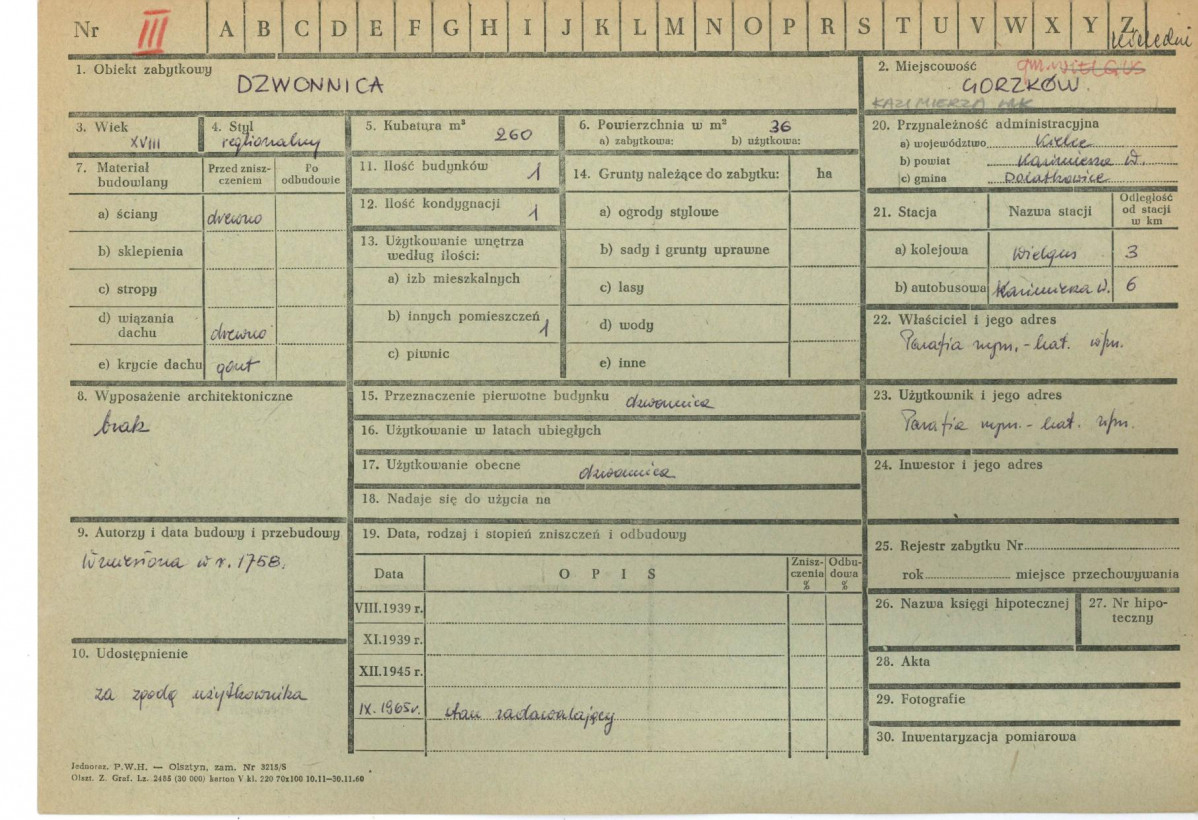 Nr III A B C D E F G H I J K L M N O P R S T U V W X Y Z
1. Obiekt zabytkowy
DZWONNICA
2. Miejscowość
gm. WIELGUS
GORZKÓW
KAZIMIERZA WLK
3. Wiek
XVIII
4. Styl
regionalny
5. Kubatura m³
260
6. Powierzchnia w m² 36
a) zabytkowa: b) użytkowa:
20. Przynależność administracyjna
a) województwo Kielce
b) powiat Kazimierza W.
c) gmina
7. Materiał budowlany
Przed zniszczeniem
Po odbudowie
a) ściany drewno
b) sklepienia
c) stropy
d) wiązania dachu drewno
e) krycie dachu gont
11. Ilość budynków 1
12. Ilość kondygnacji 1
13. Użytkowanie wnętrza
według ilości:
a) izb mieszkalnych
b) innych pomieszczeń 1
c) piwnic
14. Grunty należące do zabytku: ha
a) ogrody stylowe
b) sady i grunty uprawne
c) lasy
d) wody
e) inne
21. Stacja
Nazwa stacji
Odległość od stacji w km
a) kolejowa Wielgus 3
b) autobusowa Kazimierza W. 6
22. Właściciel i jego adres
Parafia rzym.-kat. w/m.
8. Wyposażenie architektoniczne
brak
15. Przeznaczenie pierwotne budynku dzwonnica
16. Użytkowanie w latach ubiegłych
17. Użytkowanie obecne dzwonnica
18. Nadaje się do użycia na
23. Użytkownik i jego adres
Parafia rzym.-kat. w/m.
24. Inwestor i jego adres
9. Autorzy i data budowy i przebudowy
Wzniesiona w r. 1758.
19. Data, rodzaj i stopień zniszczeń i odbudowy
Data
O P I S
Znisz-
czenia
%
Odbu-
dowa
%
VIII.1939 r.
XI.1939 r.
XII.1945 r.
IX.1965 r. stan zadawalający
25. Rejestr zabytku Nr
rok miejsce przechowywania
26. Nazwa księgi hipotecznej
27. Nr hipo-
teczny
28. Akta
29. Fotografie
30. Inwentaryzacja pomiarowa
10. Udostępnienie
za zgodą użytkownika
Jednoraz. P.W.H. — Olsztyn, zam. Nr 3215/S
Olszt. Z. Graf. Lz. 2485 (30 000) karton V kl. 220 70x100 10.11—30.11.60